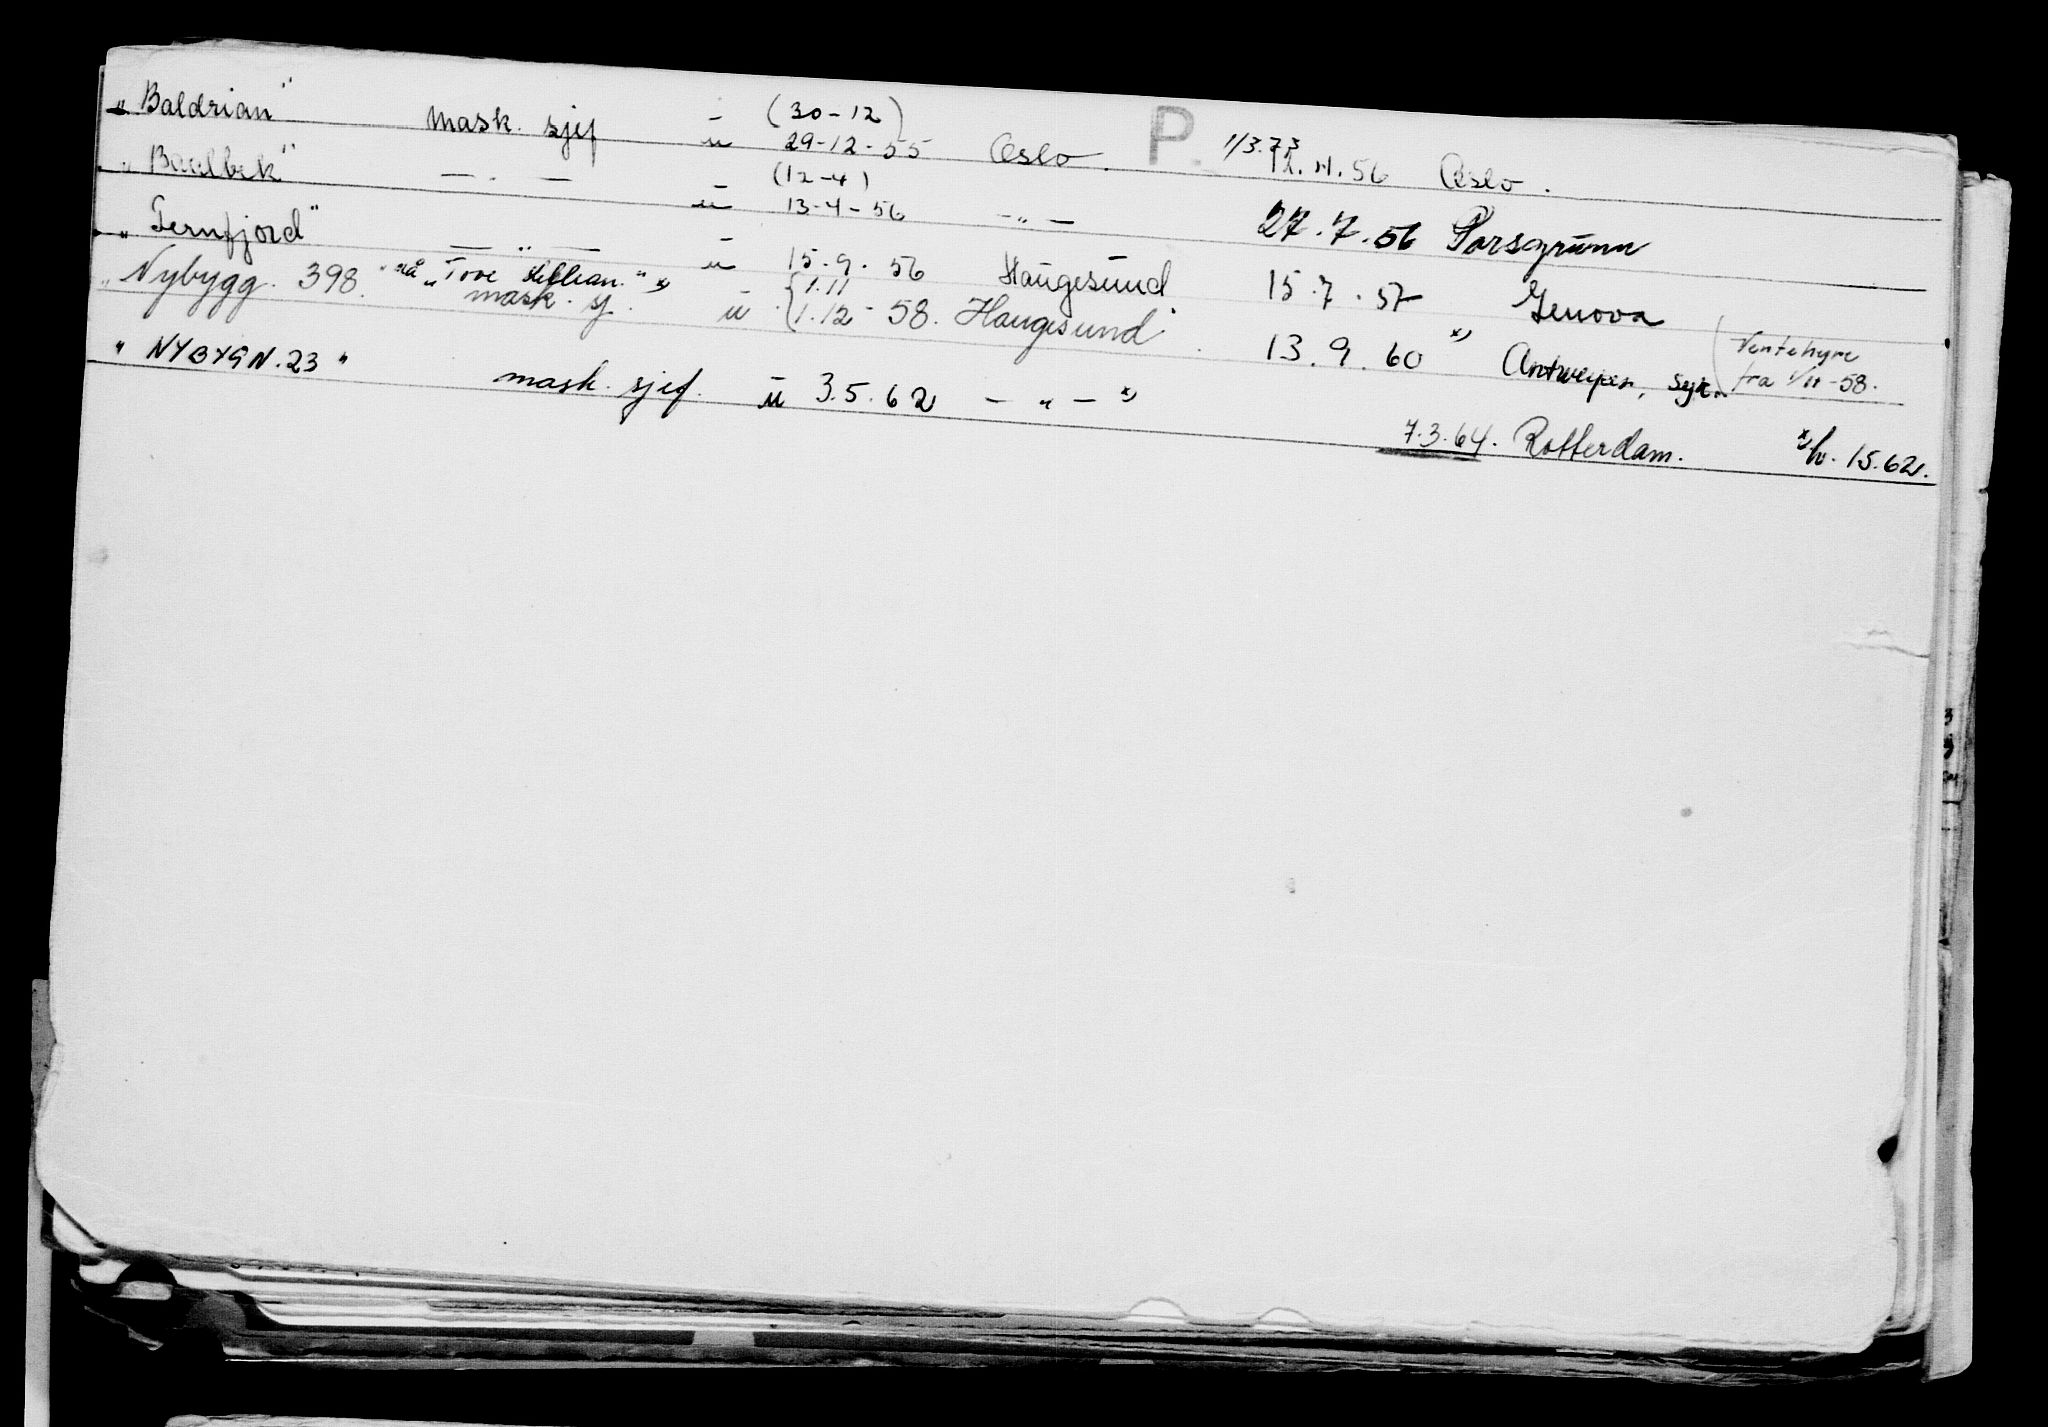 „Baldrian" mask. sjef ū (30-12) 29-12-55 Oslo. P. 1/3.73 56 Oslo.
„Baalbek" — . — ū (12-4) 13-4-56 — „ — 27.7.56 Porsgrunn
„Ternfjord" — „ — ū 15.9.56 Haugesund 15.7.57 Genova
„Nybygg. 398" nå „Tove Lillian." x) mask. sj. ū {1.11 1.12-58. Haugesund. 13.9.60 x) Antwerpen, syk. (Ventehyre fra 1/11-58.
„NYBYGN.23" mask. sjef. ū 3.5.62 — „ — x) 7.3.64. Rotterdam. x) 15.62.